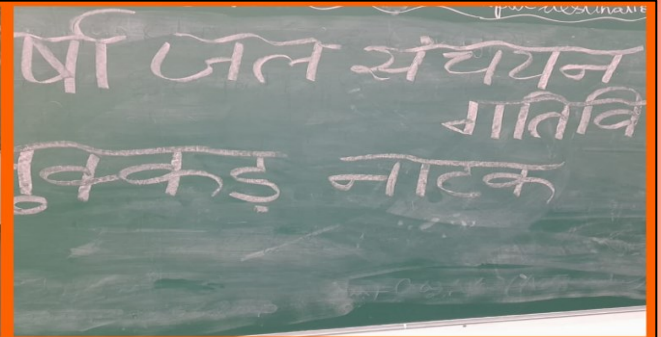 र्षा जल संचयन
गतिवि
ुक्कड़ नाटक